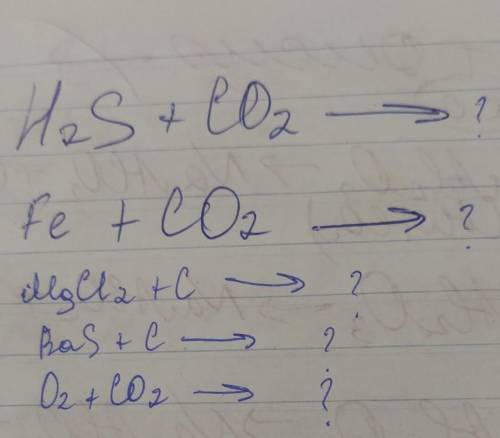 H₂S + CO₂ ⟶ ?
Fe + CO₂ ⟶ ?
MgCl₂ + C ⟶ ?
BaS + C ⟶ ?
O₂ + CO₂ ⟶ ?